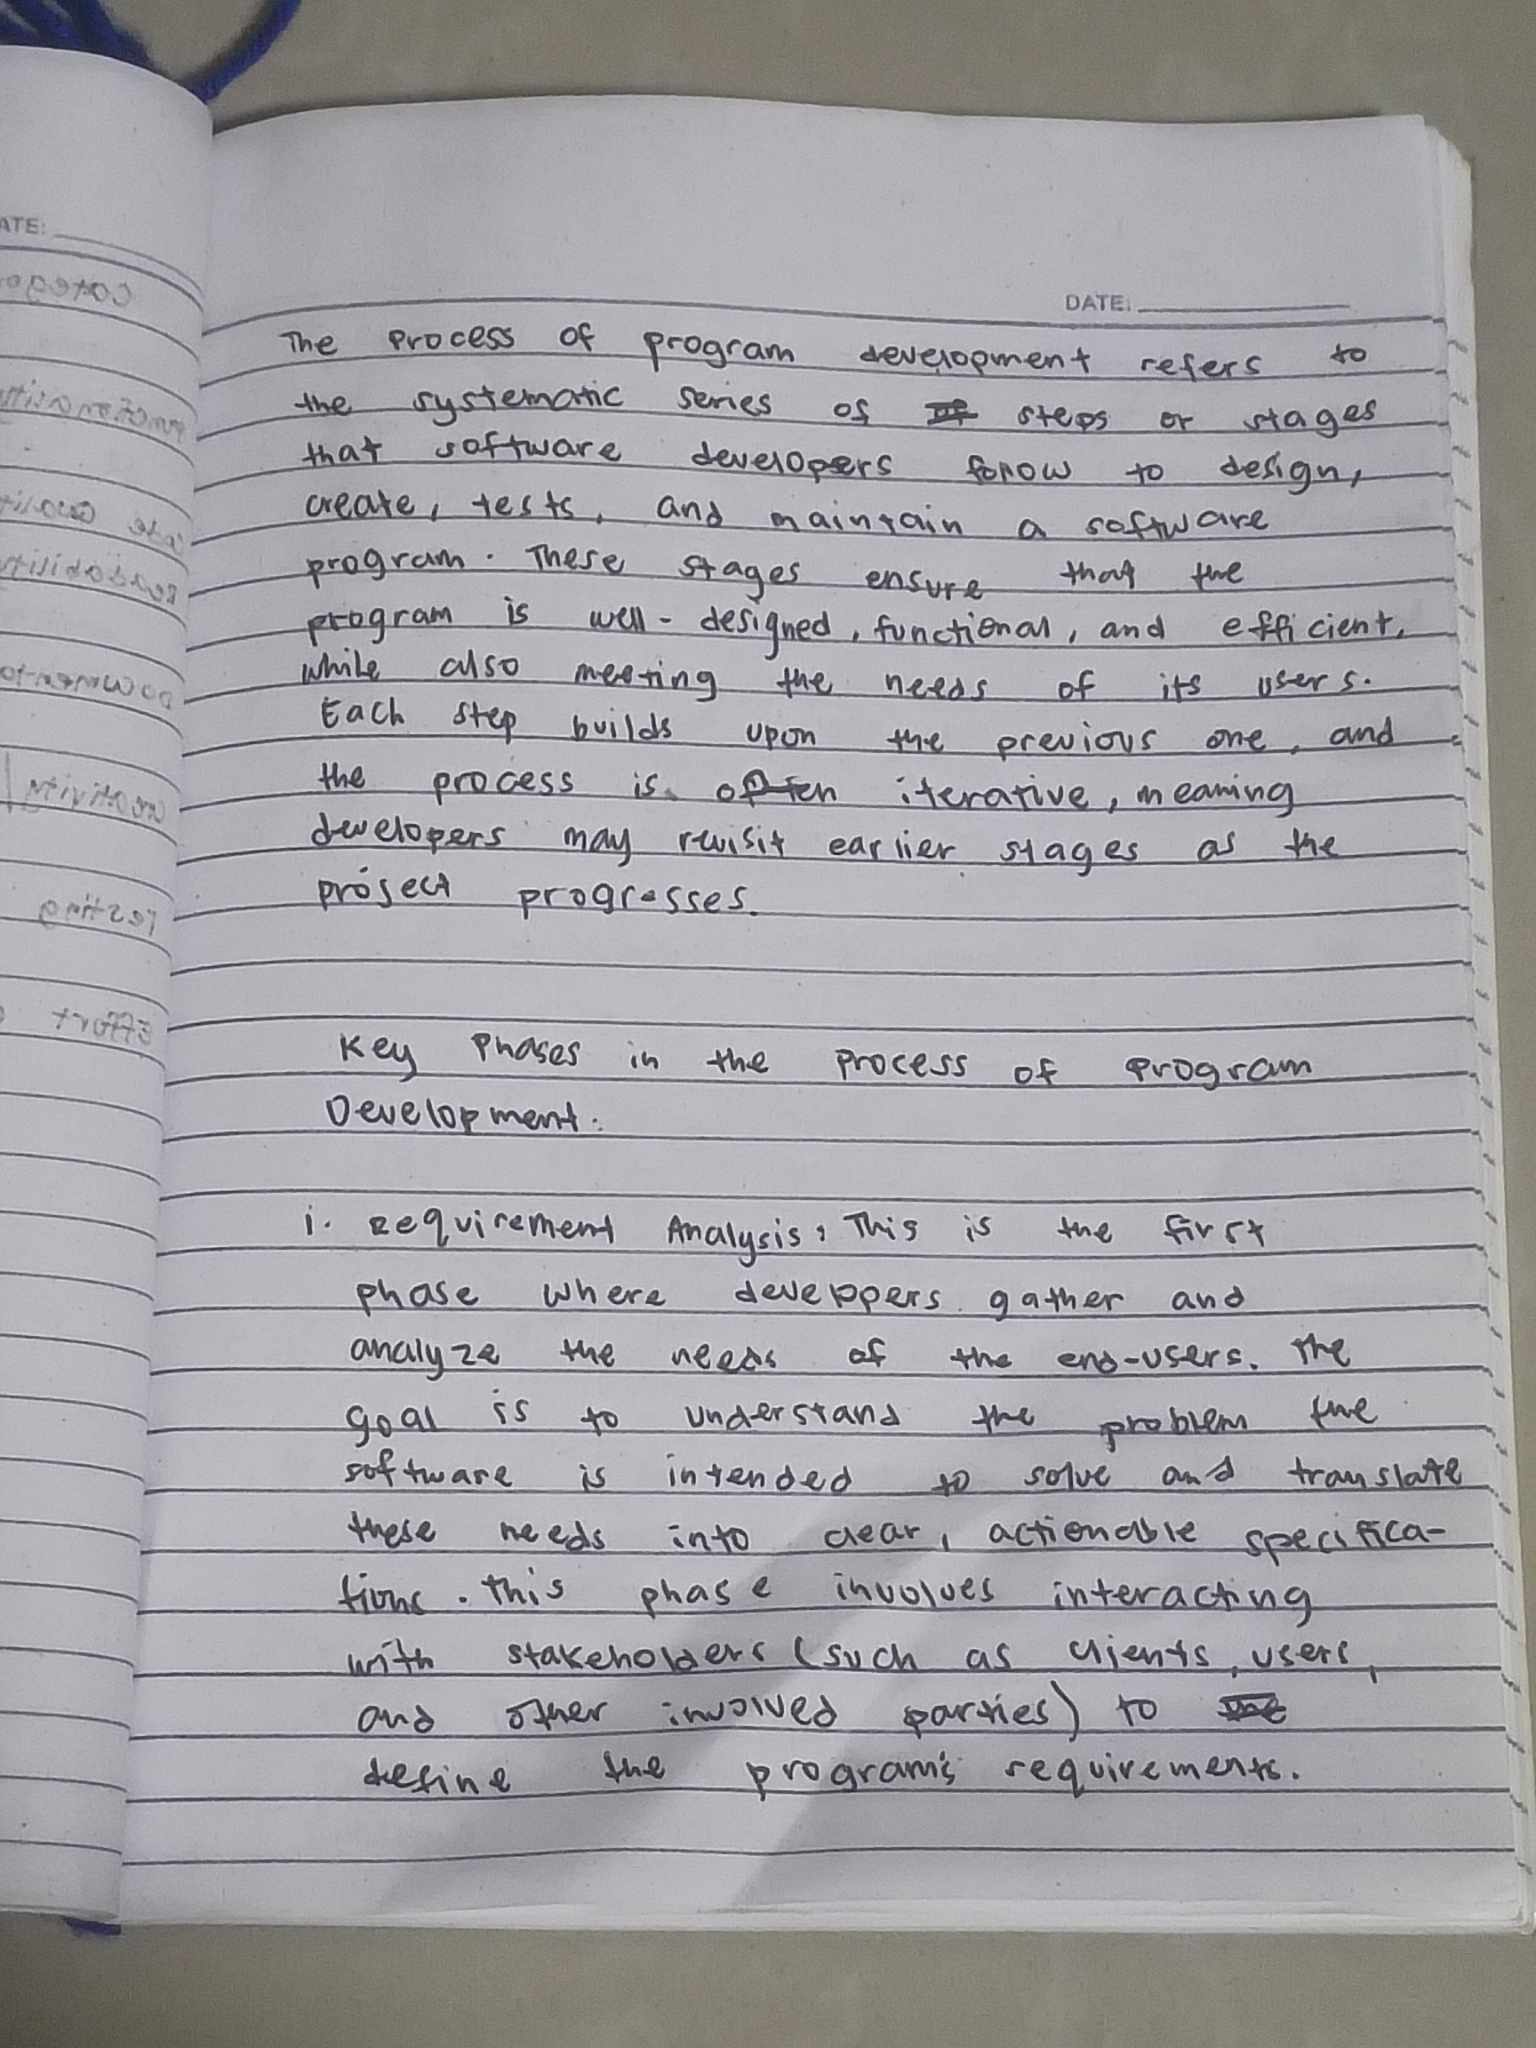 DATE:
The process of program development refers to
the systematic series of steps or stages
that software developers follow to design,
create, tests, and maintain a software
program. These stages ensure that the
program is well-designed, functional, and efficient,
while also meeting the needs of its users.
Each step builds upon the previous one, and
the process is often iterative, meaning
developers may revisit earlier stages as the
project progresses.
Key Phases in the process of program
Development:
i. Requirement Analysis: This is the first
phase where developers gather and
analyze the needs of the end-users. The
goal is to understand the problem the
software is intended to solve and translate
these needs into clear, actionable specifica-
tions. This phase involves interacting
with stakeholders (such as clients, users,
and other involved parties) to
define the program's requirements.